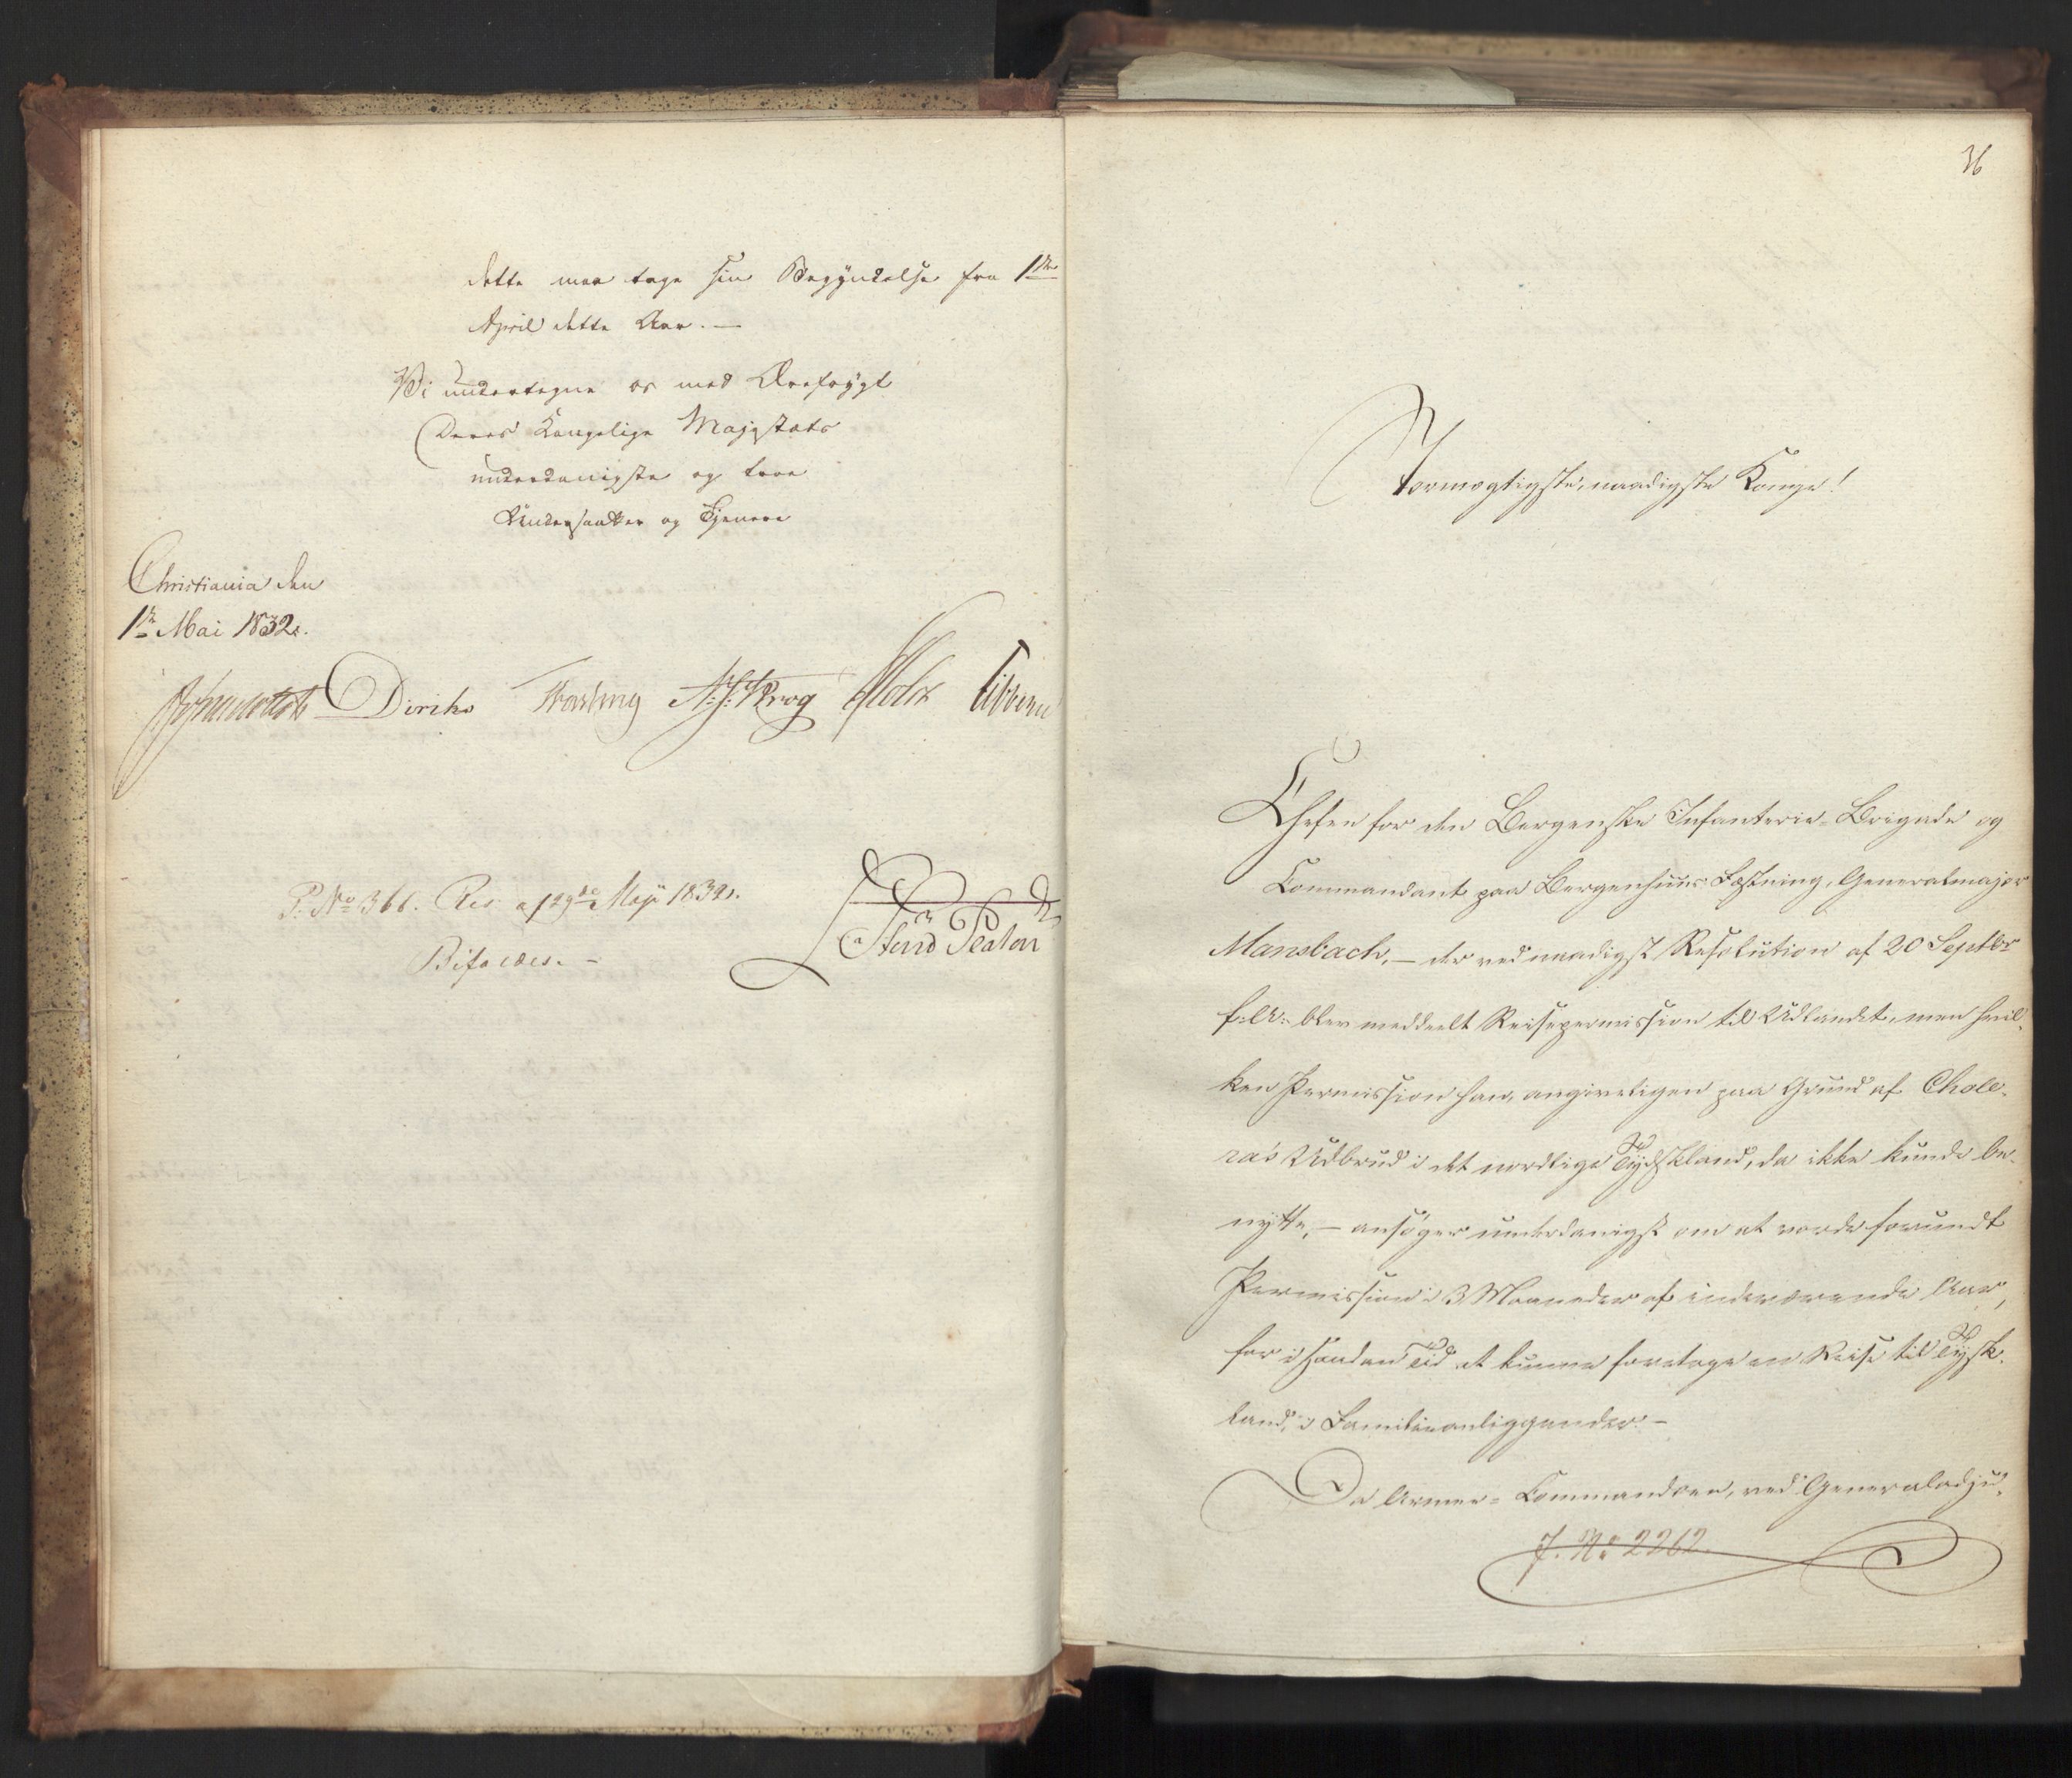 dette maa tage sin Begyndelse fra 1ste
April dette Aar. —
Vi undertegne os med Ærefrygt
Deres Kongelige Majestæts
underdanigste og troe
Undersaatter og Tjenere
Christiania den
1ste Mai 1832.
Diriks N: J: Krog
P: No 366. Res. af 29de Maji 1832.
Bifaldes. —
36
Stormægtigste, naadigste Konge!
Chefen for den Bergenske Infanterie-Brigade og
Commandant paa Bergenhuus Fæstning, Generalmajor
Mansbach, — der ved naadigst Resolution af 20 Septbr
f: A: blev meddeelt Reisepermission til Udlandet, men hvil-
ken Permission han, angiveligen paa Grund af Chole-
ra's Udbrud i det nordlige Tydskland, da ikke kunde be-
nytte, — ansøger underdanigst om at vorde forundt
Permission i 3 Maaneder af indeværende Aar,
for i saadan Tid at kunne foretage en Reise til Tysk-
land, i Familieanliggender. —
Da Armee-Commandoen, ved Generaladju-
J. No 2262.